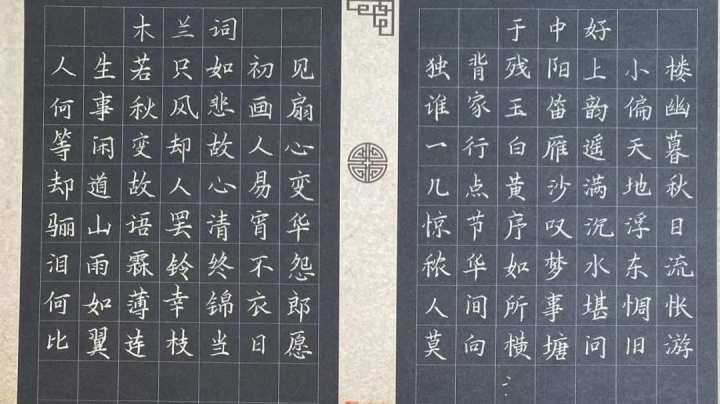 木兰词
人生若只如初见
何事秋风悲画扇
等闲变却故人心
却道故人心易变
骊山语罢清宵华
泪雨霖铃终不怨
何如薄幸锦衣郎
比翼连枝当日愿
于中好
独背残阳上小楼
谁家玉笛韵偏幽
一行白雁遥天暮
几点黄沙满地秋
惊节序叹沉浮日
秾华如梦水东流
人间所事堪惆怅
莫向横塘问旧游